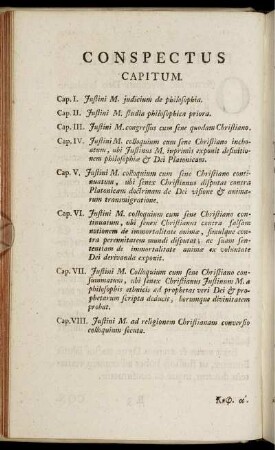 CONSPECTUS
CAPITUM.
Cap. I. Justini M. judicium de philosophia.
Cap. II. Justini M. studia philosophica priora.
Cap. III. Justini M. congressus cum sene quodam Christiano.
Cap. IV. Justini M. colloquium cum sene Christiano incho-
atum, ubi Justinus M. inprimis exponit definitio-
nem philosophiæ & Dei Platonicam.
Cap. V. Justini M. colloquium cum sene Christiano con-
tinuatum, ubi senex Christianus disputat contra
Platonicam doctrinam de Dei visione & anima-
rum transmigratione.
Cap. VI. Justini M. colloquium cum sene Christiano con-
tinuatum, ubi senex Christianus contra falsam
rationem de immortalitate animæ, simulque con-
tra perennitatem mundi disputat, ex suam sen-
tentiam de immortalitate animæ ex voluntate
Dei derivanda exponit.
Cap. VII. Justini M. Colloquium cum sene Christiano con-
summatum, ubi senex Christianus Justinum M. a
philosophis ethnicis ad prophetas veri Dei & pro-
phetarum scripta deducit, horumque divinitatem
probat.
Cap. VIII. Justini M. ad religionem Christianam conversio
colloquium secuta.
Κεφ. α'.